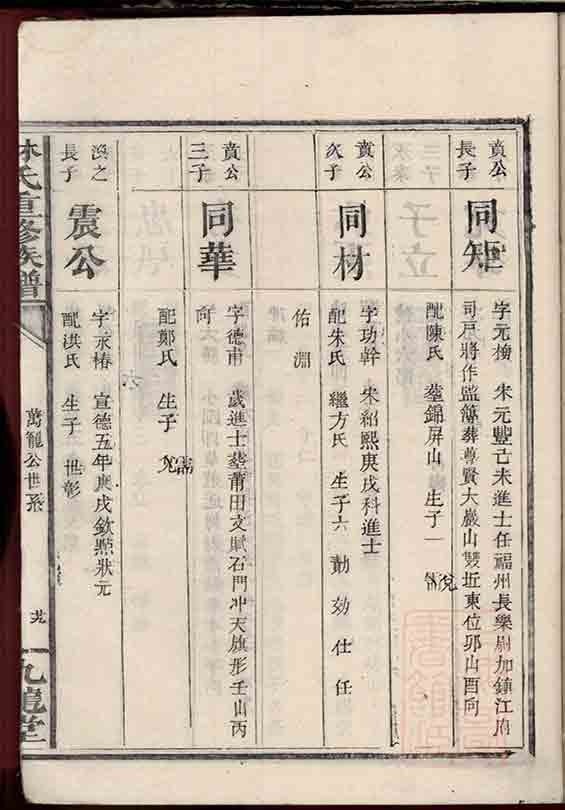 賁公
長子
同矩
字元榜 宋元豐己未進士任福州長樂尉加鎮江府
司戶將作監簿葬尊賢大巖山雙坵東位卯山酉向
配陳氏 塟錦屏山 生子一
賁公
次子
同材
字功幹 宋紹熙庚戌科進士
配朱氏 繼方氏 生子六 勣 効 仕 任
佑 淵
賁公
三子
同華
字德甫 歲進士塟莆田文賦石門冲天旗形壬山丙
向
配鄭氏 生子
渙之
長子
震公
字永椿 宣德五年庚戌欽點狀元
配洪氏 生子 世彰
林氏重修族譜
萬寵公世系
九龍堂